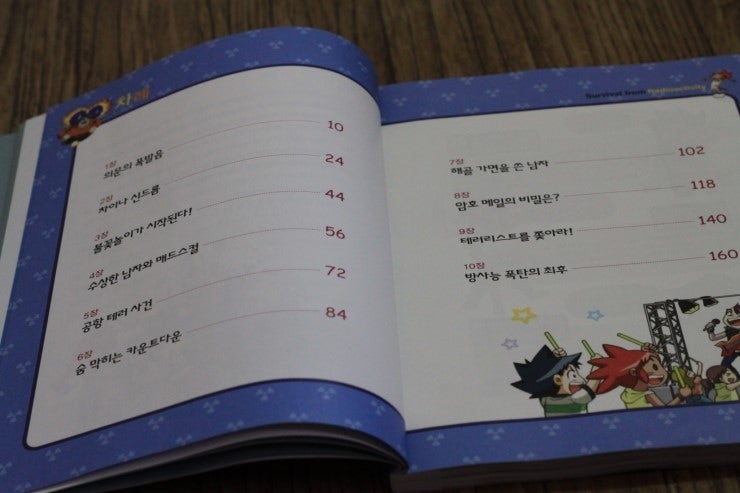 차례
1장
의문의 폭발음 10
2장
차이나 신드롬 24
3장
불꽃놀이가 시작된다! 44
4장
수상한 남자와 매드스컬 56
5장
공항 테러 사건 72
6장
숨 막히는 카운트다운 84
Survival from Radioactivity
7장
해골 가면을 쓴 남자 102
8장
암호 메일의 비밀은? 118
9장
테러리스트를 쫓아라! 140
10장
방사능 폭탄의 최후 160